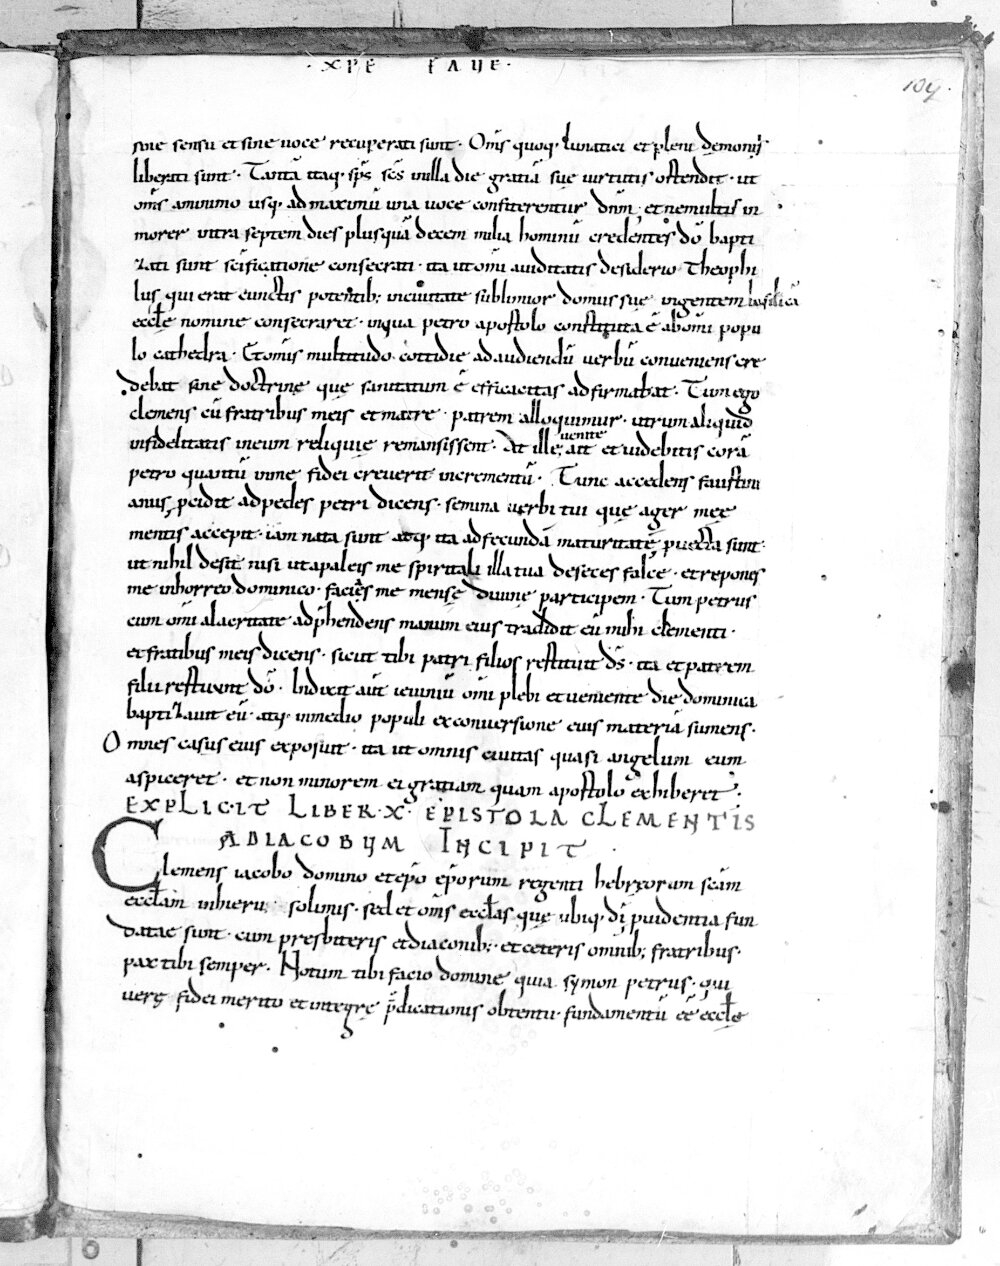 · XPE FAVE ·
109.
sine sensu et sine uoce recuperati sunt · Om̄s quoq· lunatici et pleni demonij
liberati sunt · Tantā itaq· sp̄s sc̄s in illa die gratiā suę uirtutis ostendit · ut
om̄s a minimo usq· ad maximū una uoce confiterentur dn̄m · et ne multis in
morer intra septem dies plusquā decem milia hominū credentes dō bapti
zati sunt scificatione consecrati · ita ut omī auiditatis desiderio Theophi
lus qui erat cunctis potentib; in ciuitate sublimior domus suę ingentem basilicā
eccłę nomine consecraret · in qua petro apostolo constituta ē ab omī popu
lo cathedra · Et om̄is multitudo cottidie ad audiendū uerbū conueniens cre
debat sanę doctrinę quę sanitatum ē efficacitas adfirmabat · Tum ego
clemens cū fratribus meis et matre · patrem alloquimur · utrum aliquid
infidelitatis in eum reliquię remansissent · At ille, ait uenite et uidebitis corā
petro quantū in me fidei creuerit incrementū · Tunc accedens faustini
anus, pcidit ad pedes petri dicens · semina uerbi tui quę ager meę
mentis accepit · iam nata sunt atq· ita ad fecundā maturitatē puecta sunt ·
ut nihil desit nisi ut a paleis me spiritali illa tua deseces falce · et reponis
me in horreo dominico · faciēs me mensę diuinę participem · Tum petrus
cum omī alacritate adp̄hendens manum eius tradidit eū mihi clementi ·
et fratibus meis dicens · sicut tibi patri filios restituit d̄s · ita et patrem
filii restuunt dō · Indixit aūt ieiuniū omī plebi et ueniente die dominica
baptizauit eū · atq· in medio populi ex conuersione eius materiā sumens ·
Omnes casus eius exposuit · ita ut omnis ciuitas quasi angelum eum
aspiceret · et non minorem ei gratiam quam apostolo exhiberet ·
EXPLICIT LIBER · X · EPISTOLA CLEMENTIS
AD IACOBUM INCIPIT ·
Clemens iacobo domino et ep̄o ep̄orum regenti hebręorum sc̄am
eccłam in hieru; solimis · sed et om̄s eccłas quę ubiq· dī puidentia fun
datae sunt · cum presbiteris et diaconib; · et ceteris omnib; fratribus ·
pax tibi semper · Notum tibi facio domine quia symon petrus · qui
uerę fidei merito et integrę p̄dicationis obtentu · fundamentū eē eccłę